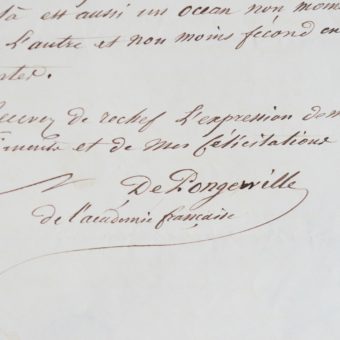 là est aussi un ocean non moin
L'autre et non moins fécond en
Recevez de rechef L'expression de m
et de mes félicitations
De Pongerville
de l'académie française